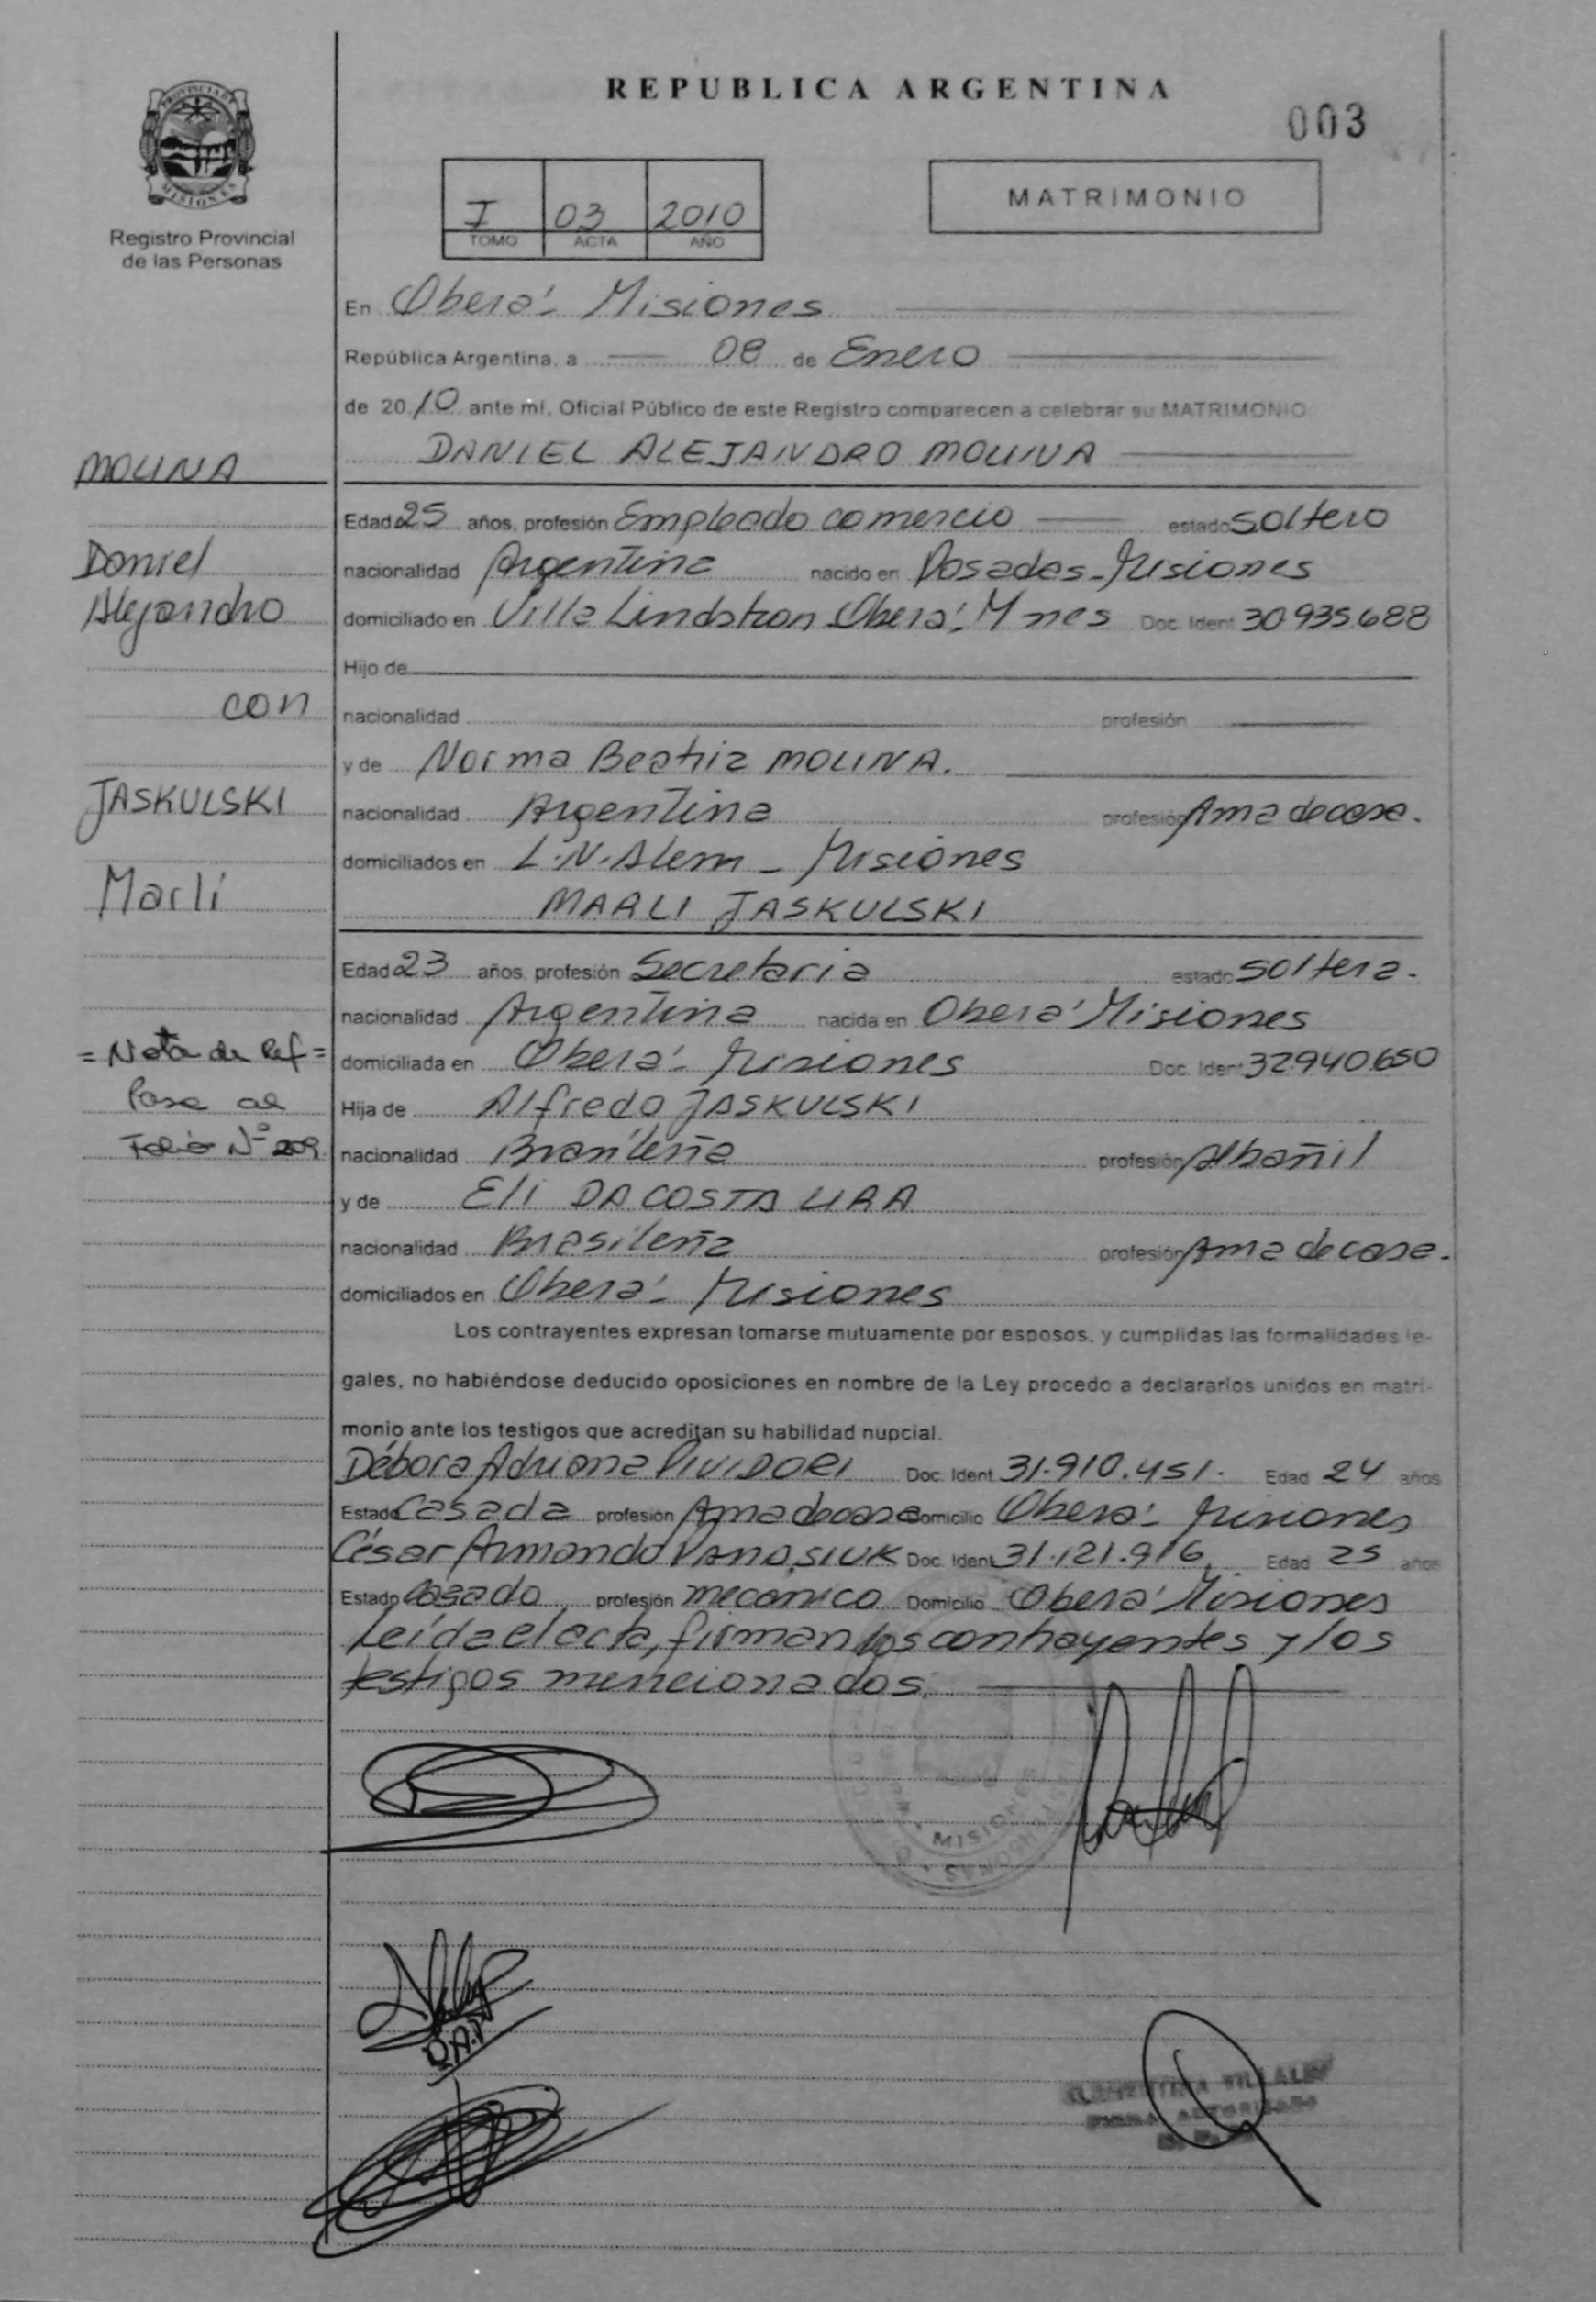 REPUBLICA ARGENTINA
003
PROVINCIA DE
MISIONES
Registro Provincial
de las Personas
I 03 2010
TOMO ACTA AÑO
MATRIMONIO
En Oberá - Misiones
República Argentina, a 08 de Enero
de 2010 ante mí, Oficial Público de este Registro comparecen a celebrar su MATRIMONIO
DANIEL ALEJANDRO MOLINA
Edad 25 años, profesión Empleado comercio estado soltero
nacionalidad Argentina nacido en Posadas - Misiones
domiciliado en Villa Lindstron Oberá - Mnes Doc. Ident 30.935.688
Hijo de
nacionalidad profesión
y de Norma Beatriz MOLINA.
nacionalidad Argentina profesión Ama de casa.
domiciliados en L.N. Alem - Misiones
MARLI JASKULSKI
Edad 23 años, profesión Secretaria estado soltera.
nacionalidad Argentina nacida en Oberá Misiones
domiciliada en Oberá - Misiones Doc. Ident 32.940.650
Hija de Alfredo JASKULSKI
nacionalidad Brasileña profesión Albañil
y de Eli DA COSTA LIRA
nacionalidad Brasileña profesión Ama de casa.
domiciliados en Oberá - Misiones
Los contrayentes expresan tomarse mutuamente por esposos, y cumplidas las formalidades le-
gales, no habiéndose deducido oposiciones en nombre de la Ley procedo a declararlos unidos en matri-
monio ante los testigos que acreditan su habilidad nupcial.
Débora Adriana PIVIDORI Doc. Ident 31.910.451. Edad 24 años
Estado Casada profesión Ama de casa Domicilio Oberá - Misiones
César Armando PANASIUK Doc. Ident 31.121.916. Edad 25 años
Estado casado profesión mecanico Domicilio Oberá Misiones
Leída el acta, firman los contrayentes y los
testigos mencionados.
MOLINA
Daniel
Alejandro
con
JASKULSKI
Marli
= Nota de Ref =
Pasa al
Folio Nº 209
MISIONES
D.A.P